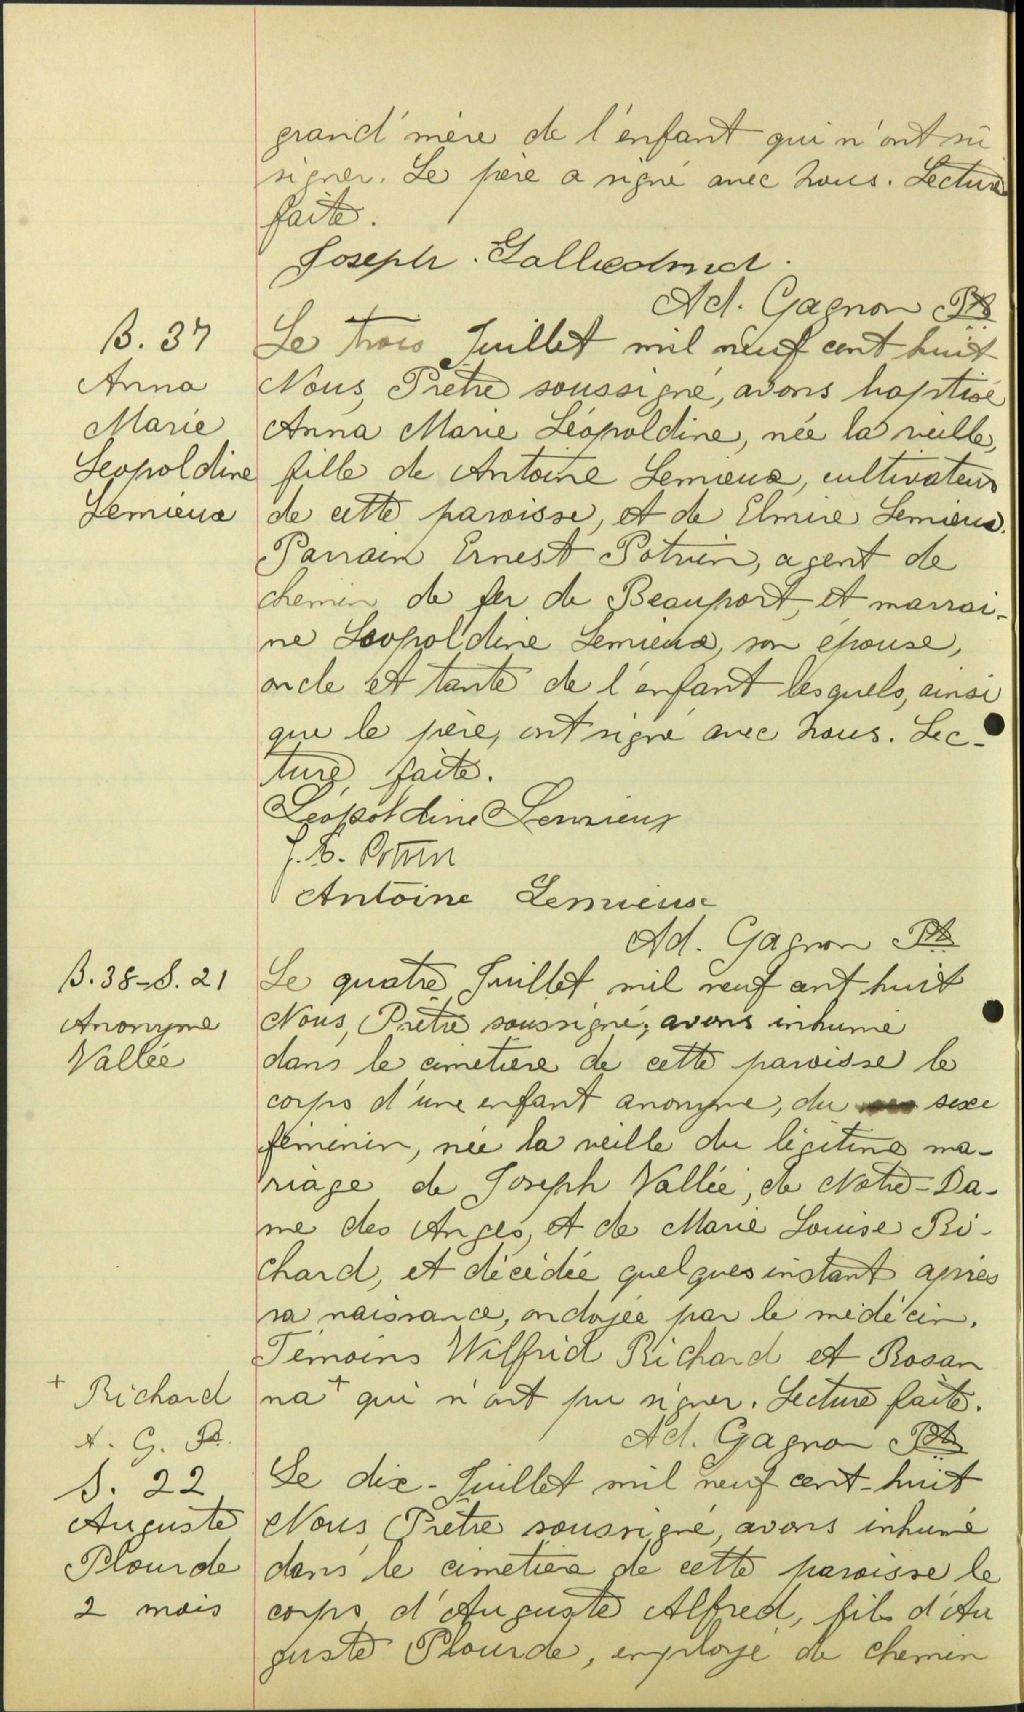 grand'mère de l'enfant qui n'ont su
signer. Le père a signé avec nous. Lecture
faite.
Joseph
Ad. Gagnon Ptre
B. 37
Anna
Marie
Leopoldine
Lemieux
Le trois Juillet mil neuf cent huit
Nous, Prêtre soussigné, avons baptisé
Anna Marie Léopoldine, née la veille,
fille de Antoine Lemieux, cultivateur
de cette paroisse, et de Elmire Lemieux.
Parrain Ernest Potvin, agent de
chemin de fer de Beauport, et marrai-
ne Leopoldine Lemieux, son épouse,
oncle et tante de l'enfant lesquels, ainsi
que le père, ont signé avec nous. Lec-
ture faite.
Léopoldine Lemieux
J. E. Potvin
Antoine Lemieux
Ad. Gagnon Ptre
B. 38 - S. 21
Anonyme
Vallée
Le quatre Juillet mil neuf cent huit
Nous, Prêtre soussigné, avons inhumé
dans le cimetière de cette paroisse le
corps d'une enfant anonyme, du sexe
féminin, née la veille du légitime ma-
riage de Joseph Vallée, de Notre-Da-
me des Anges, et de Marie Louise Ri-
chard, et décédée quelques instant après
sa naissance, ondoyée par le médécin.
Témoins Wilfrid Richard et Rosan
na + qui n'ont pu signer. Lecture faite.
+ Richard
A. G. Ptre
Ad. Gagnon Ptre
S. 22
Auguste
Plourde
2 mois
Le dix - Juillet mil neuf cent-huit
Nous, Prêtre soussigné, avons inhumé
dans le cimetière de cette paroisse le
corps d'Auguste Alfred, fils d'Au
guste Plourde, employé de chemin